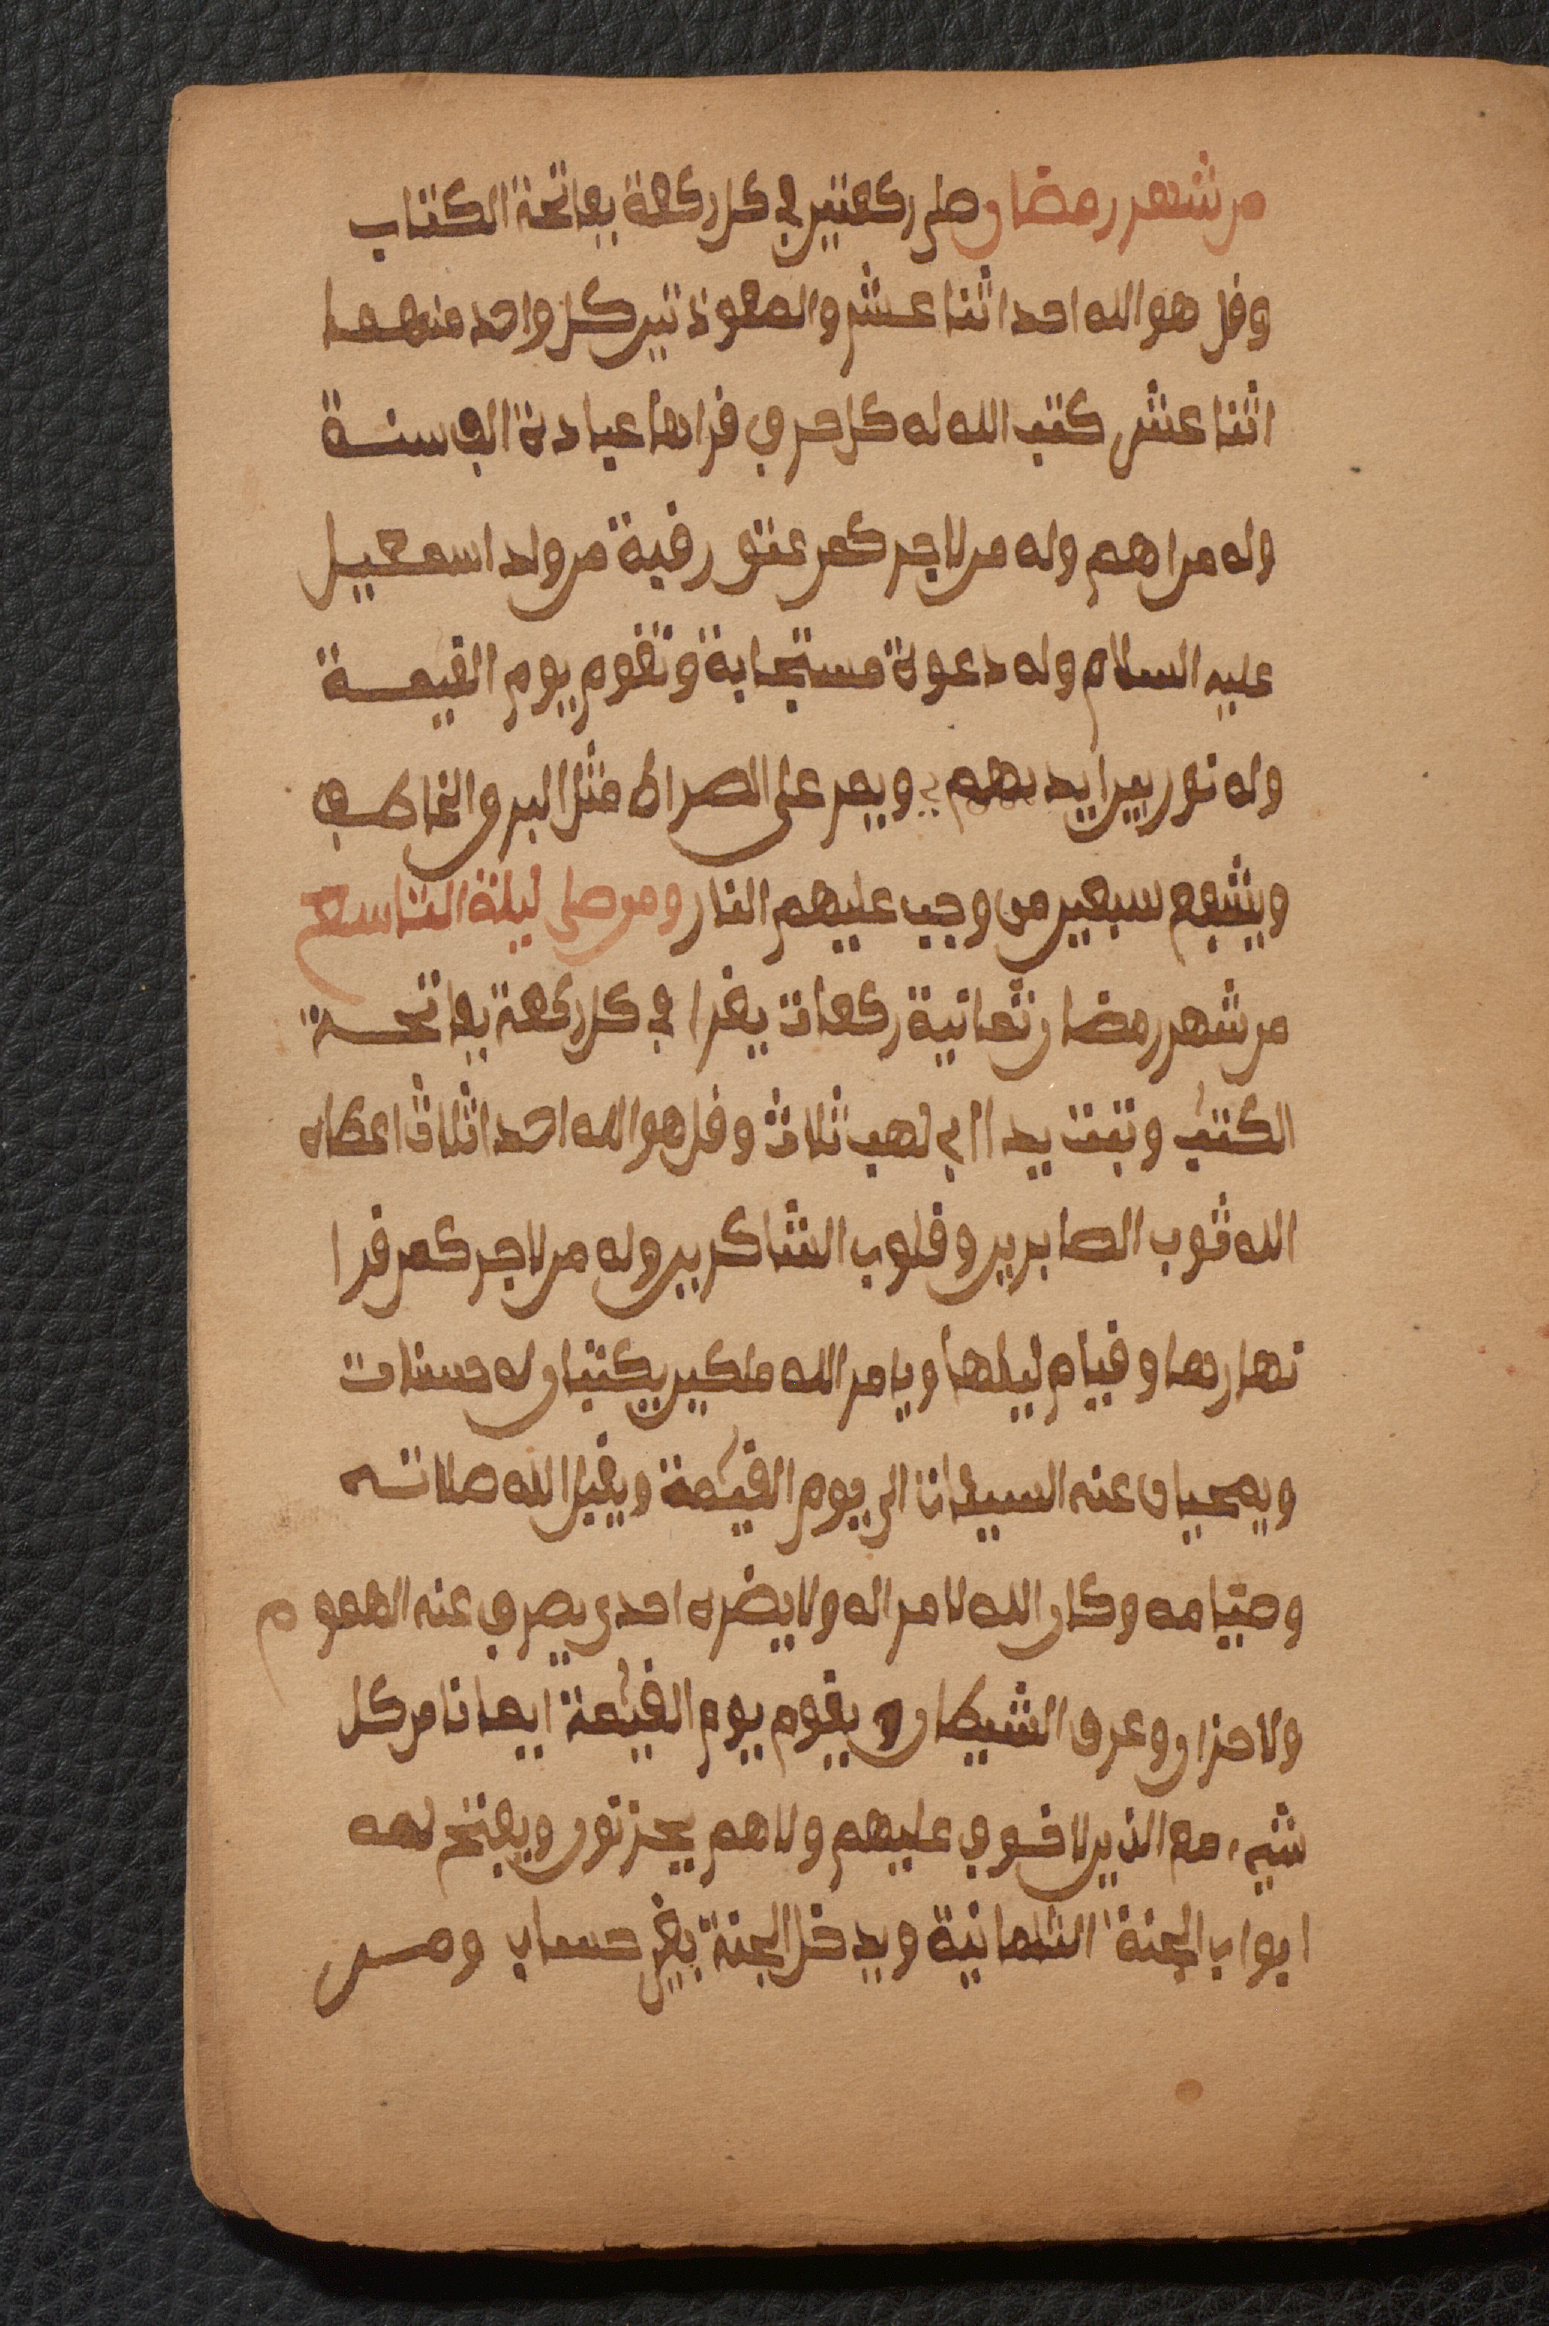 من شهر رمضان صلى ركعتين في كل ركعة بفاتحة الكتاب
وقل هو الله احد اثنا عشر والمعوذتين كل واحد منهما
اثنا عشر كتب الله له كل حرف قراها عبادة الف سنة
وله مراهم وله من لاجر كمن عتق رقبة من ولد اسمعيل
عليه السلام وله دعوة مستجابة وتقوم يوم القيمة
وله نور بين ايديهم ويمر على الصراط مثل البرق الخاطف
ويشفع سبعين من وجب عليهم النار ومن صلى ليلة التاسع
من شهر رمضان ثمانية ركعات يقرا في كل ركعة بفاتحة
الكتب وتبت يدا ابي لهب ثلاث وقل هو الله احد اثلاث اعطاه
الله ثوب الصابرين وقلوب الشاكرين وله من لاجر كمن قرا
نهارها وقيام ليلها ويامر الله ملكين يكتبان له حسنات
ويمحيان عنه السيئات الى يوم القيمة ويقبل الله صلاته
وصيامه وكان الله لامراله ولا يضره احدى يصرف عنه الهموم
ولاحزان وعرف الشيطان ويقوم يوم القيمة ايمانا من كل
شيء مع الذين لا خوف عليهم ولاهم يحزنون ويفتح له
ابواب الجنة الثمانية ويدخل الجنة بغير حساب ومن